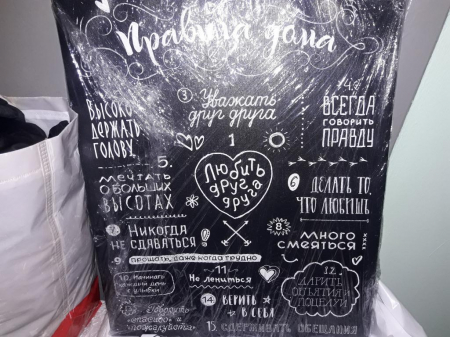 Правила дома
3 Уважать
друг друга
ВЫСОКО
ДЕРЖАТЬ
ГОЛОВУ
1
Любить
друг
друга
ВСЕГДА
ГОВОРИТЬ
ПРАВДУ
5.
мечтать
о больших
ВЫСОТАХ
6 ДЕЛАТЬ ТО,
ЧТО ЛЮБИШЬ
Никогда
не сдаваться!
8.
много
смеяться
9. прощать, даже когда трудно
10. Начинать
каждый день
с улыбки
11
Не лениться
12.
ДАРИТЬ
ОБЪЯТИЯ
И ПОЦЕЛУИ
Говорить
«спасибо» и
«пожалуйста»
14 ВЕРИТЬ
В СЕБЯ
15. СДЕРЖИВАТЬ ОБЕЩАНИЯ